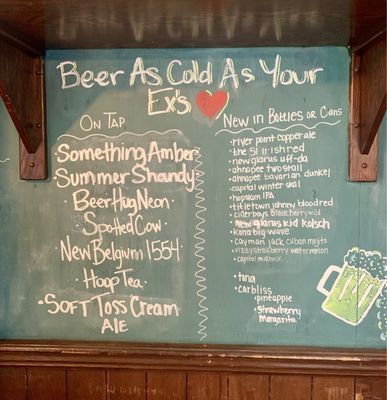 Beer As Cold As Your
Ex's
On Tap
Something Amber
Summer Shandy
Beer Hug Neon
Spotted Cow
New Belgium 1554
Hoop Tea
Soft Toss Cream
Ale
New in Bottles or Cans
river point copper ale
the 51 irish red
new glarus uff-da
ahnapee two stall
ahnapee bavarian dunkel
capital winter skal
hopalum IPA
titletown johnny blood red
ciderboys blackberry wild
new glarus kid kolsch
kona big wave
cayman jack cuban mojito
vizzy strawberry watermelon
capital maibock
tona
carbliss
pineapple
strawberry
margarita